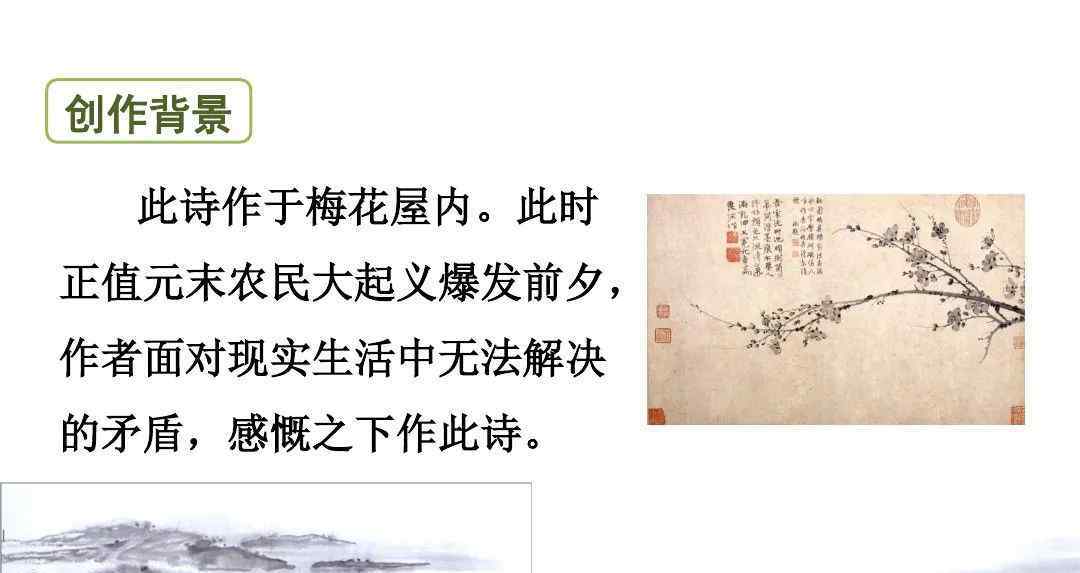 创作背景
此诗作于梅花屋内。此时
正值元末农民大起义爆发前夕，
作者面对现实生活中无法解决
的矛盾，感慨之下作此诗。